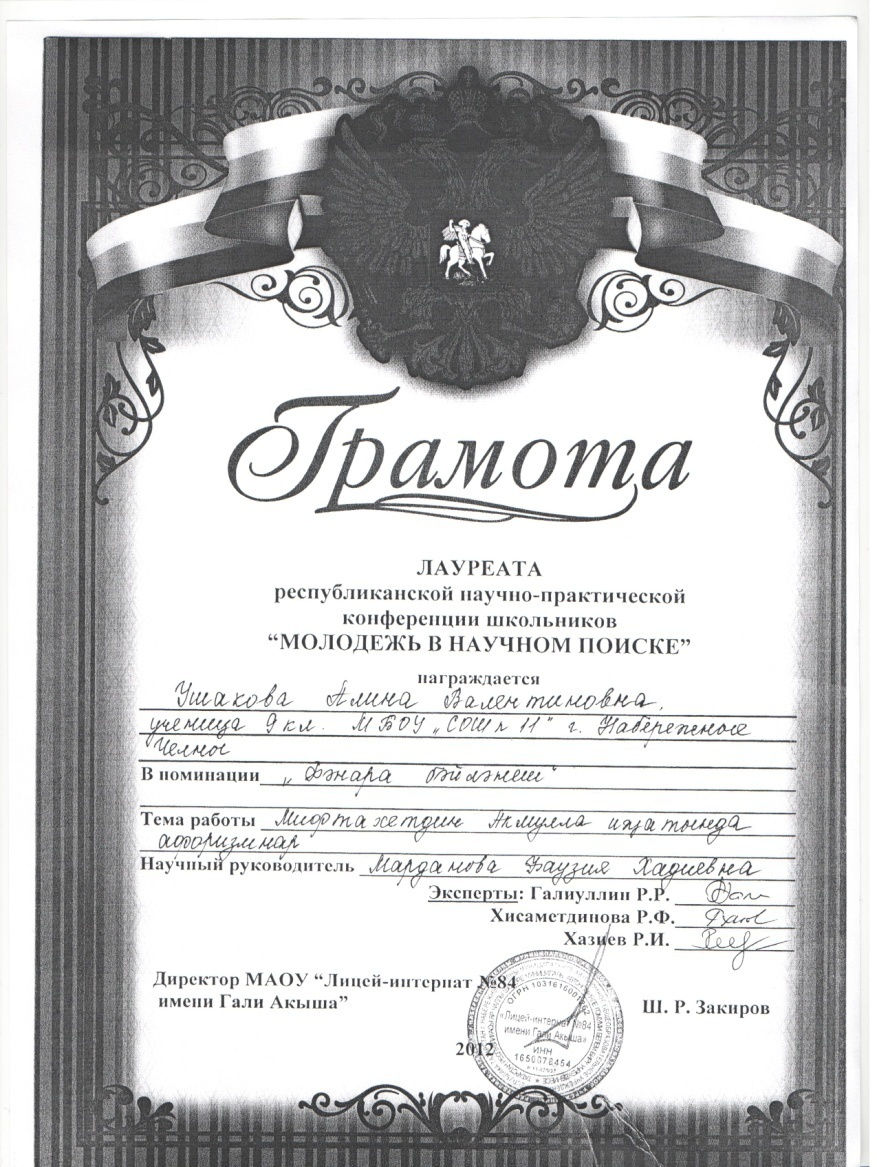 Грамота
ЛАУРЕАТА
республиканской научно-практической
конференции школьников
“МОЛОДЕЖЬ В НАУЧНОМ ПОИСКЕ”
награждается
Ушакова Алина Валентиновна,
ученица 9 кл. МБОУ „СОШ № 11" г. Набережные
Челны
В номинации „Фэнара бәйләнеш"
Тема работы Мифтахетдин Акмулла иҗатында
афоризмнар
Научный руководитель Марданова Фаузия Хадиевна
Эксперты: Галиуллин Р.Р.
Хисаметдинова Р.Ф.
Хазиев Р.И.
Директор МАОУ “Лицей-интернат №84
имени Гали Акыша”
Ш. Р. Закиров
2012
«Лицей-интернат №84
имени Гали Акыша»
ИНН
1650078454